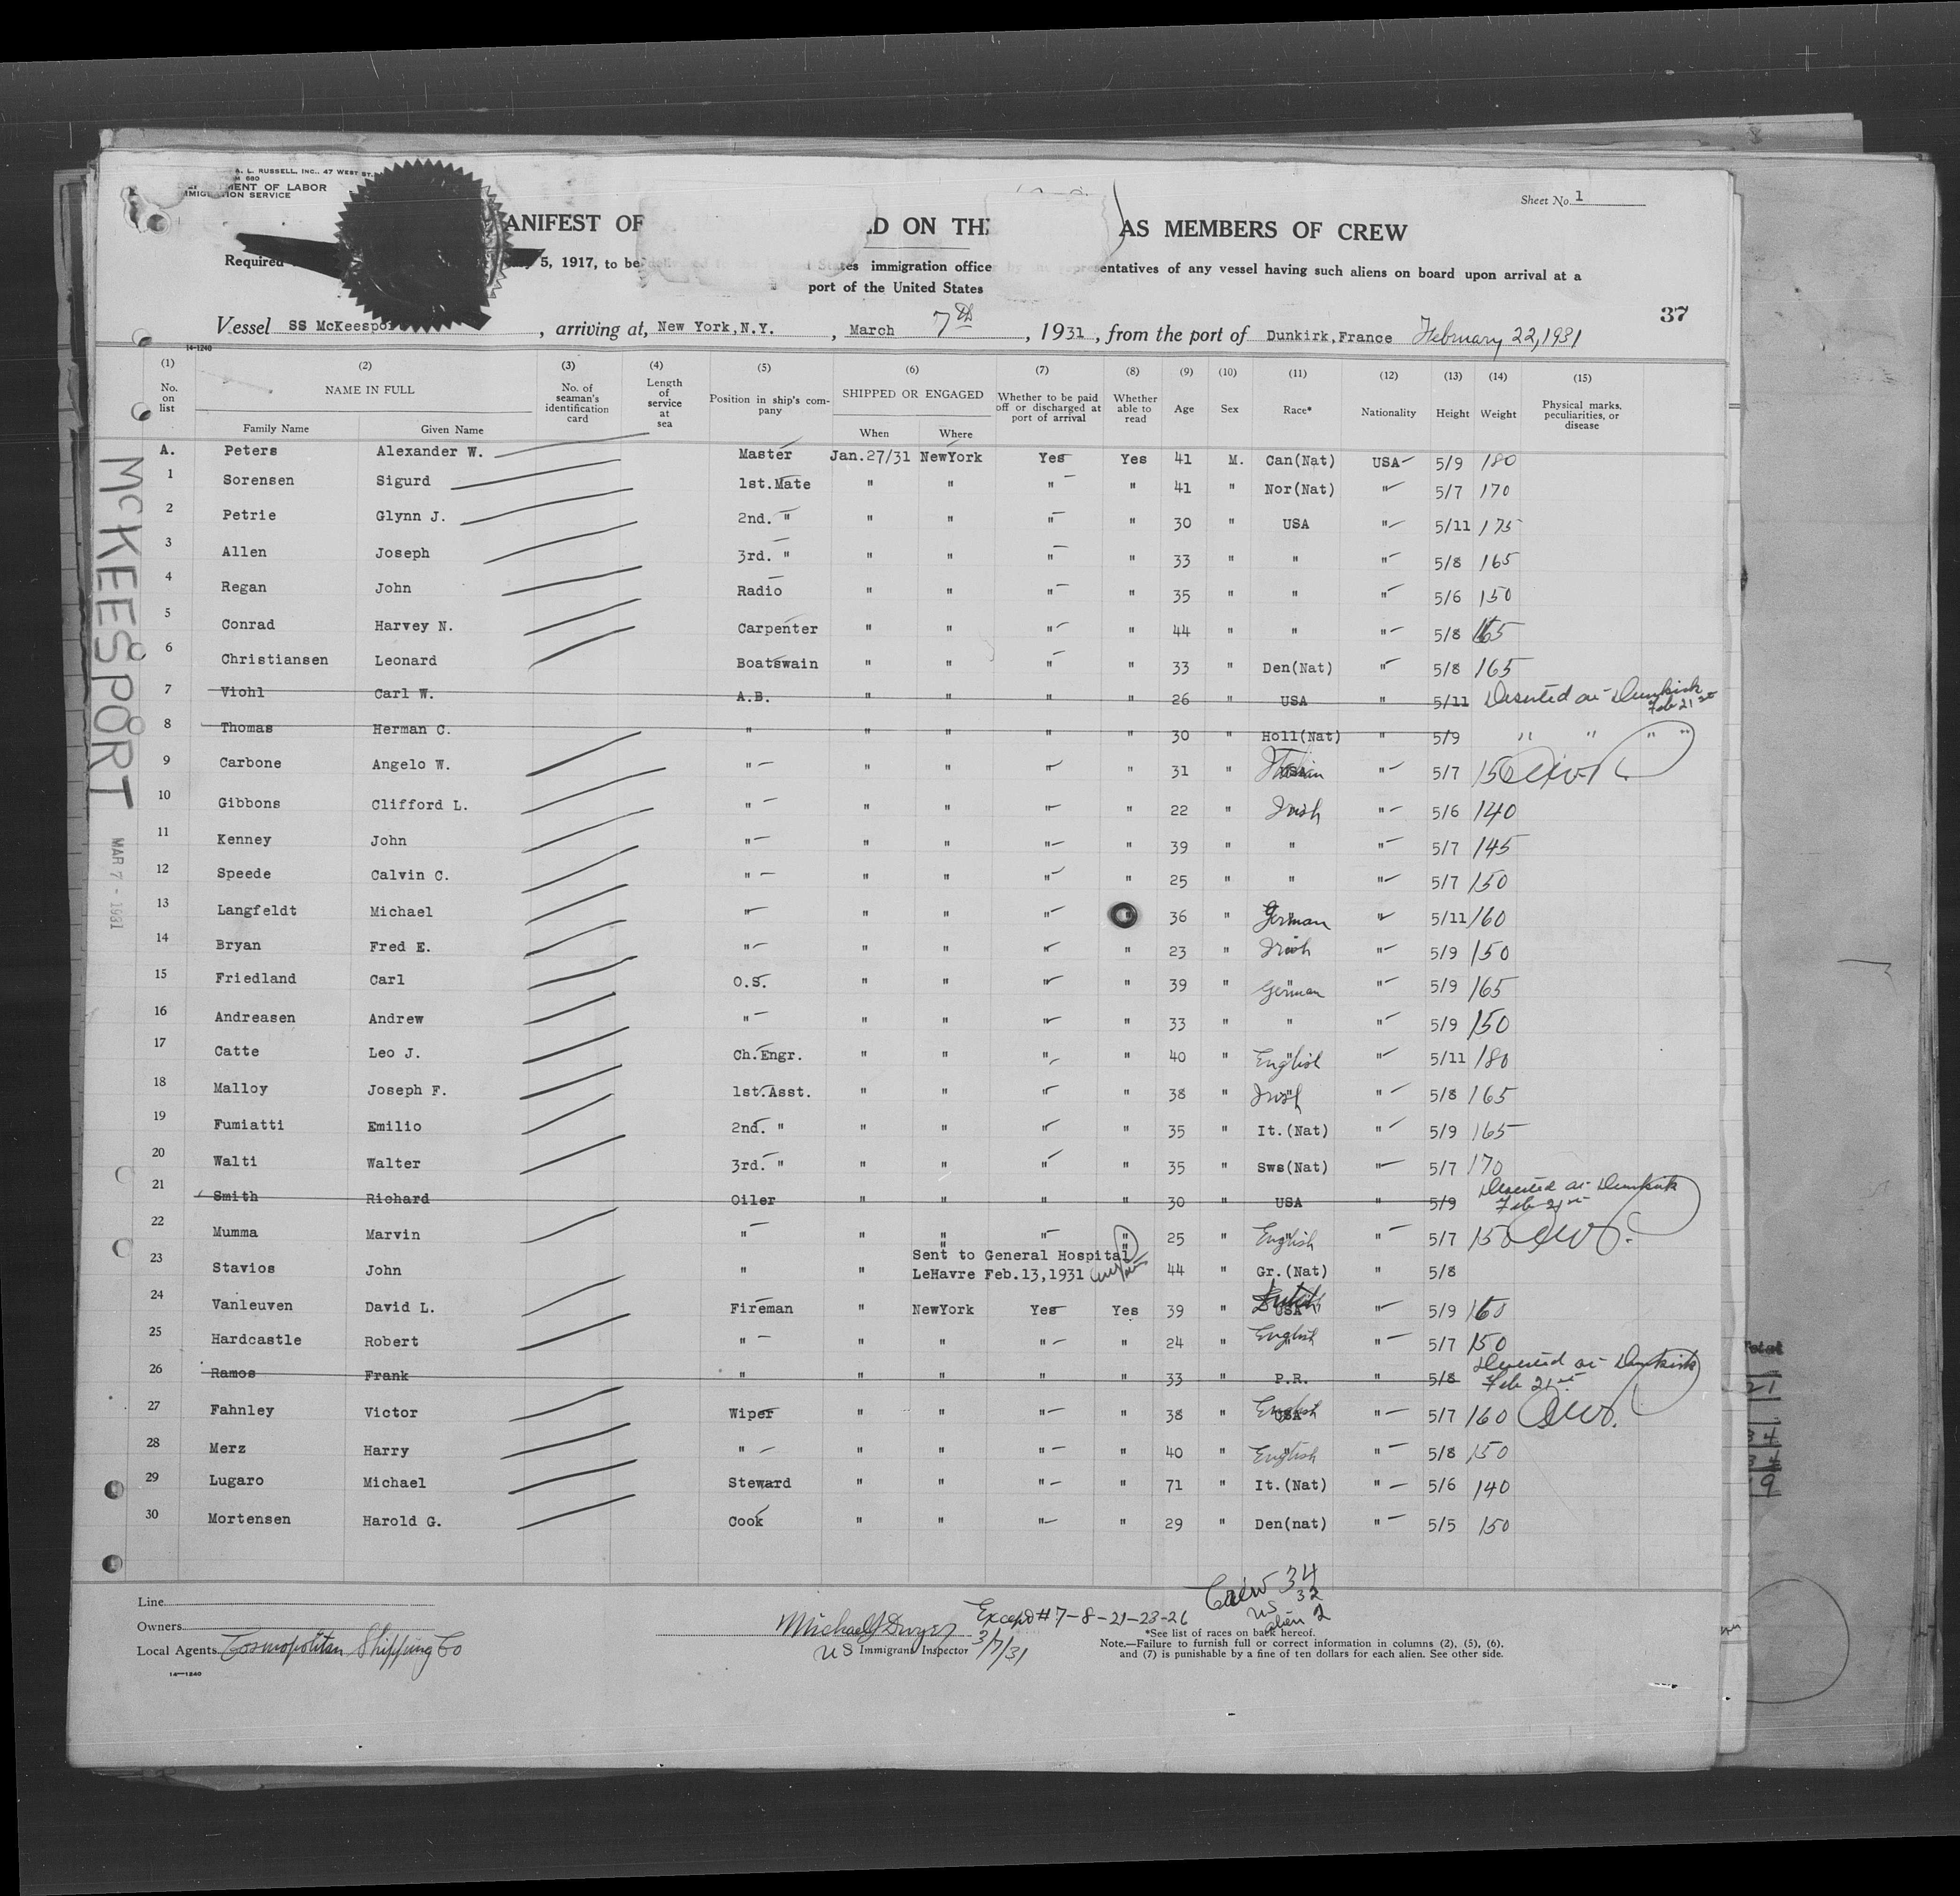 A. L. RUSSELL, INC., 47 WEST ST.
M 680
MENT OF LABOR
IMMIGRATION SERVICE
Sheet No. 1
ANIFEST OF ED ON THE AS MEMBERS OF CREW
Required 5, 1917, to be States immigration office by the representatives of any vessel having such aliens on board upon arrival at a
port of the United States
37
Vessel SS McKeesport, arriving at, New York, N.Y., March 7th, 1931, from the port of Dunkirk, France February 22, 1931
14-1240
(1) (2) (3) (4) (5) (6) (7) (8) (9) (10) (11) (12) (13) (14) (15)
No. on list NAME IN FULL No. of seaman's identification card Length of service at sea Position in ship's company SHIPPED OR ENGAGED Whether to be paid off or discharged at port of arrival Whether able to read Age Sex Race* Nationality Height Weight Physical marks, peculiarities, or disease
Family Name Given Name When Where
A. Peters Alexander W. Master Jan.27/31 NewYork Yes Yes 41 M. Can(Nat) USA 5/9 180
1 Sorensen Sigurd 1st.Mate " " " " 41 " Nor(Nat) " 5/7 170
2 Petrie Glynn J. 2nd. " " " " " 30 " USA " 5/11 175
3 Allen Joseph 3rd. " " " " " 33 " " " 5/8 165
4 Regan John Radio " " " " 35 " " " 5/6 150
5 Conrad Harvey N. Carpenter " " " " 44 " " " 5/8 165
6 Christiansen Leonard Boatswain " " " " 33 " Den(Nat) " 5/8 165
7 Viohl Carl W. A.B. " " " " 26 " USA " 5/11 Deserted at Dunkirk Feb 21st
8 Thomas Herman C. " " " " " 30 " Holl(Nat) " 5/9 " " " "
9 Carbone Angelo W. " " " " " 31 " Italian " 5/7 150
10 Gibbons Clifford L. " " " " " 22 " Irish " 5/6 140
11 Kenney John " " " " " 39 " " " 5/7 145
12 Speede Calvin C. " " " " " 25 " " " 5/7 150
13 Langfeldt Michael " " " " " 36 " German " 5/11 160
14 Bryan Fred E. " " " " " 23 " Irish " 5/9 150
15 Friedland Carl O.S. " " " " 39 " German " 5/9 165
16 Andreasen Andrew " " " " " 33 " " " 5/9 150
17 Catte Leo J. Ch.Engr. " " " " 40 " English " 5/11 180
18 Malloy Joseph F. 1st.Asst. " " " " 38 " Irish " 5/8 165
19 Fumiatti Emilio 2nd. " " " " " 35 " It.(Nat) " 5/9 165
20 Walti Walter 3rd. " " " " " 35 " Sws(Nat) " 5/7 170
21 Smith Richard Oiler " " " " 30 " USA " 5/9 Deserted at Dunkirk Feb 21st
22 Mumma Marvin " " " " " 25 " English " 5/7 150
23 Stavios John " " Sent to General Hospital LeHavre Feb.13,1931 44 " Gr.(Nat) " 5/8
24 Vanleuven David L. Fireman " NewYork Yes Yes 39 " USA " 5/9 160
25 Hardcastle Robert " " " " " 24 " English " 5/7 150
26 Ramos Frank " " " " " 33 " P.R. " 5/8 Deserted at Dunkirk Feb 21st
27 Fahnley Victor Wiper " " " " 38 " English " 5/7 160
28 Merz Harry " " " " " 40 " English " 5/8 150
29 Lugaro Michael Steward " " " " 71 " It.(Nat) " 5/6 140
30 Mortensen Harold G. Cook " " " " 29 " Den(nat) " 5/5 150
McKEESPORT
MAR 7 - 1931
Crew 34
US 32
alien 2
Line
Owners
Local Agents Cosmopolitan Shipping Co
Michael J Dwyer Except # 7-8-21-23-26
US Immigrant Inspector 3/7/31
*See list of races on back hereof.
Note.—Failure to furnish full or correct information in columns (2), (5), (6).
and (7) is punishable by a fine of ten dollars for each alien. See other side.
14—1240
Total
21
34